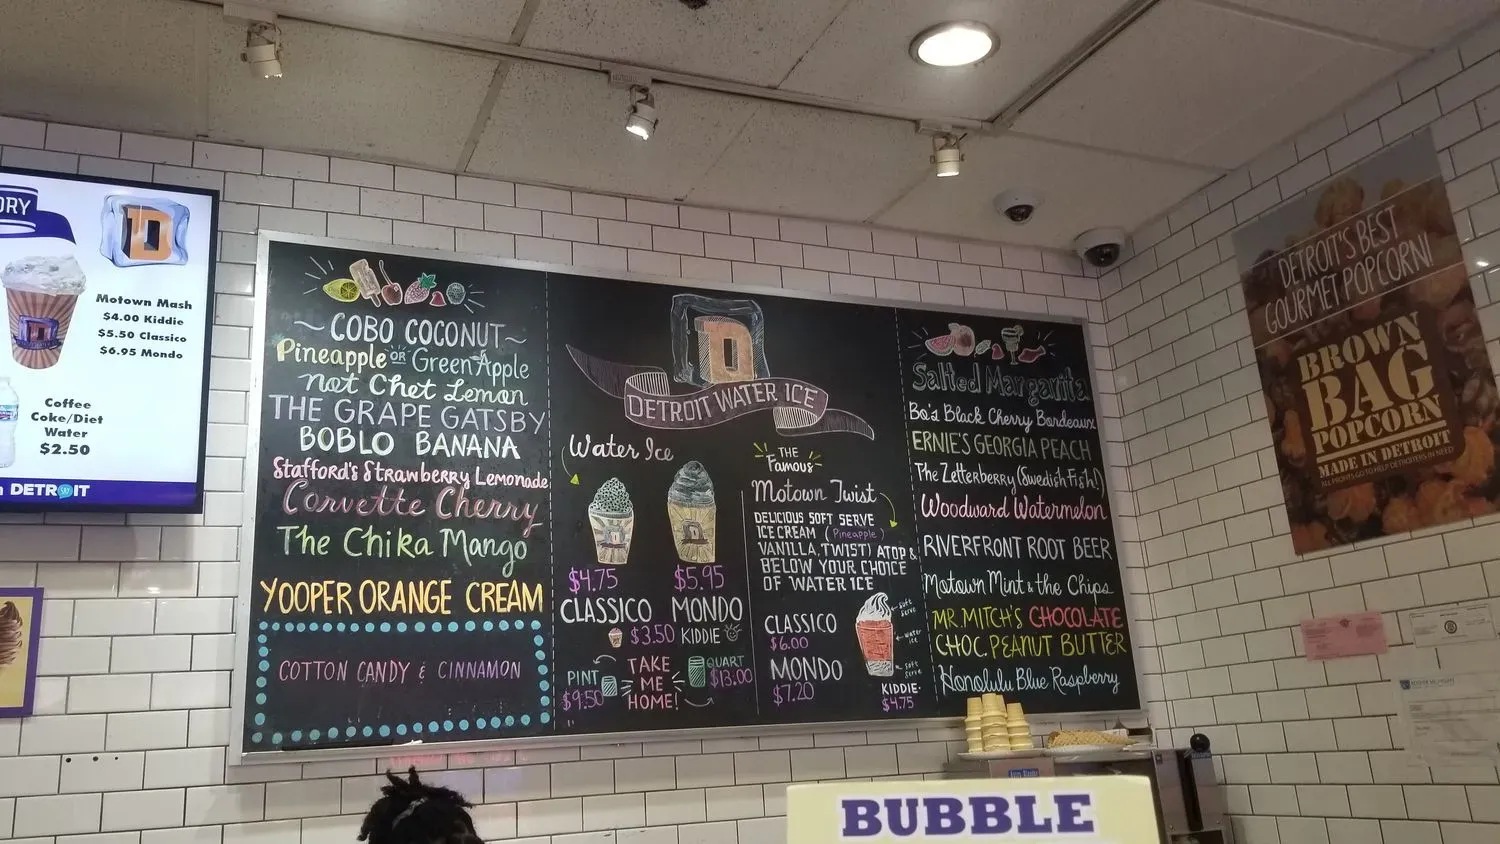 ORY
D
Motown Mash
$4.00 Kiddie
$5.50 Classico
$6.95 Mondo
Coffee
Coke/Diet
Water
$2.50
DETROIT
~COBO COCONUT~
Pineapple OR Green Apple
not Chet Lemon
THE GRAPE GATSBY
BOBLO BANANA
Stafford's Strawberry Lemonade
Corvette Cherry
The Chika Mango
YOOPER ORANGE CREAM
COTTON CANDY & CINNAMON
D
DETROIT WATER ICE
Water Ice
$4.75
CLASSICO
$5.95
MONDO
$3.50 KIDDIE
PINT
$9.50
TAKE
ME
HOME!
QUART
$13.00
THE
Famous
Motown Twist
DELICIOUS SOFT SERVE
ICE CREAM (Pineapple)
VANILLA, TWIST) ATOP &
BELOW YOUR CHOICE
OF WATER ICE
CLASSICO
$6.00
MONDO
$7.20
soft
serve
water
ice
soft
serve
KIDDIE-
$4.75
Salted Margarita
Bo's Black Cherry Bordeaux
ERNIE'S GEORGIA PEACH
The Zetterberg (Swedish Fish!)
Woodward Watermelon
RIVERFRONT ROOT BEER
Motown Mint & the Chips
MR. MITCH'S CHOCOLATE
CHOC. PEANUT BUTTER
Honolulu Blue Raspberry
DETROIT'S BEST
GOURMET POPCORN!
BROWN
BAG
POPCORN
MADE IN DETROIT
ALL PROFITS GO TO HELP DETROITERS IN NEED!
BUBBLE